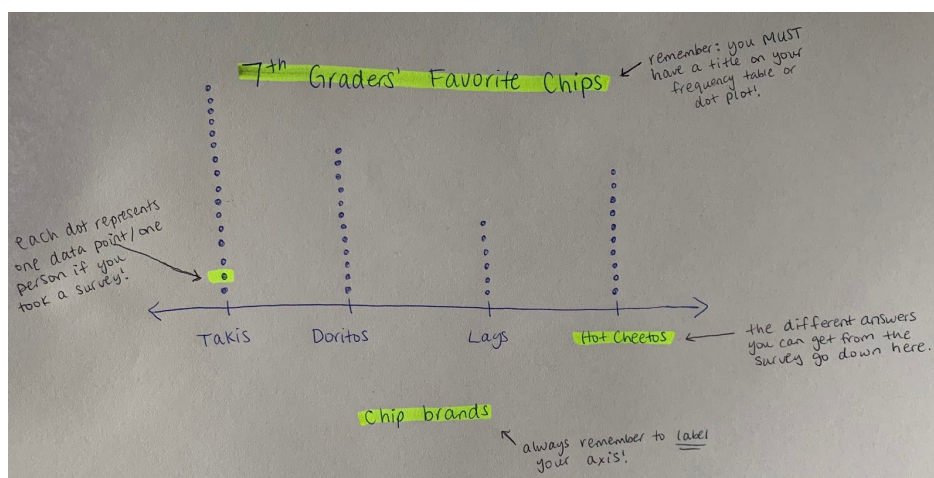 7th Graders' Favorite Chips
remember: you MUST
have a title on your
frequency table or
dot plot!
each dot represents
one data point/one
person if you
took a survey!
Takis Doritos Lays Hot Cheetos
the different answers
you can get from the
survey go down here.
Chip brands
always remember to label
your axis!